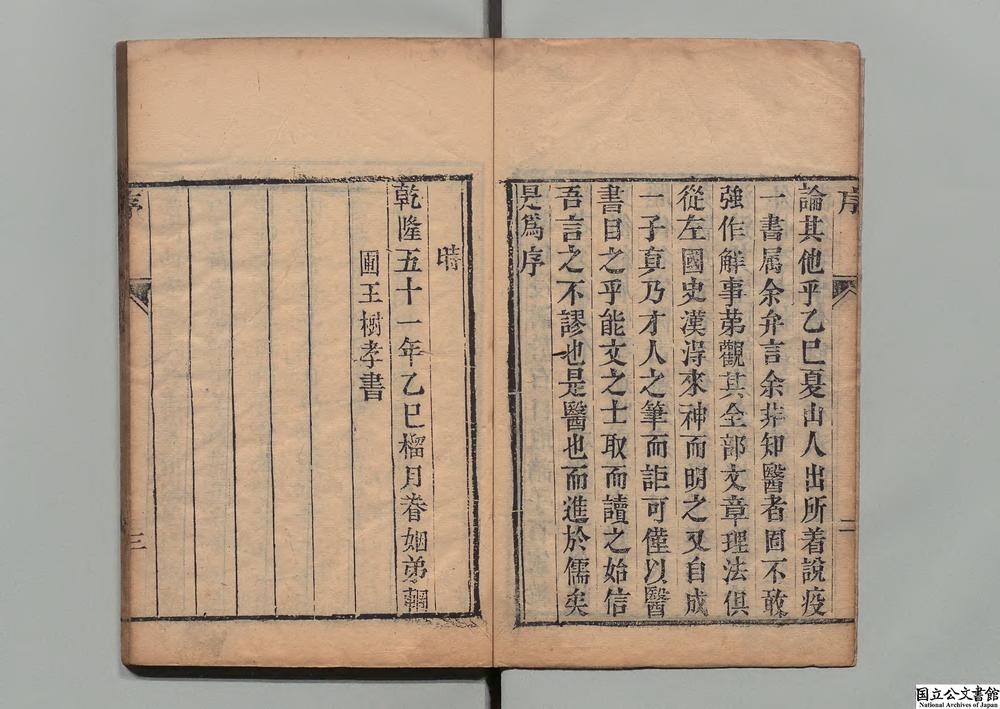 序
論其他乎乙巳夏山人出所着說疫
一書属余弁言余非知醫者固不敢
強作解事苐觀其全部文章理法俱
從左國史漢淂來神而明之又自成
一子真乃才人之筆而詎可僅以醫
書目之乎能文之士取而讀之始信
吾言之不謬也是醫也而進於儒矣
是爲序
二
時
乾隆五十一年乙巳榴月眷姻弟輞
圃王樹孝書
序
三
国立公文書館
National Archives of Japan